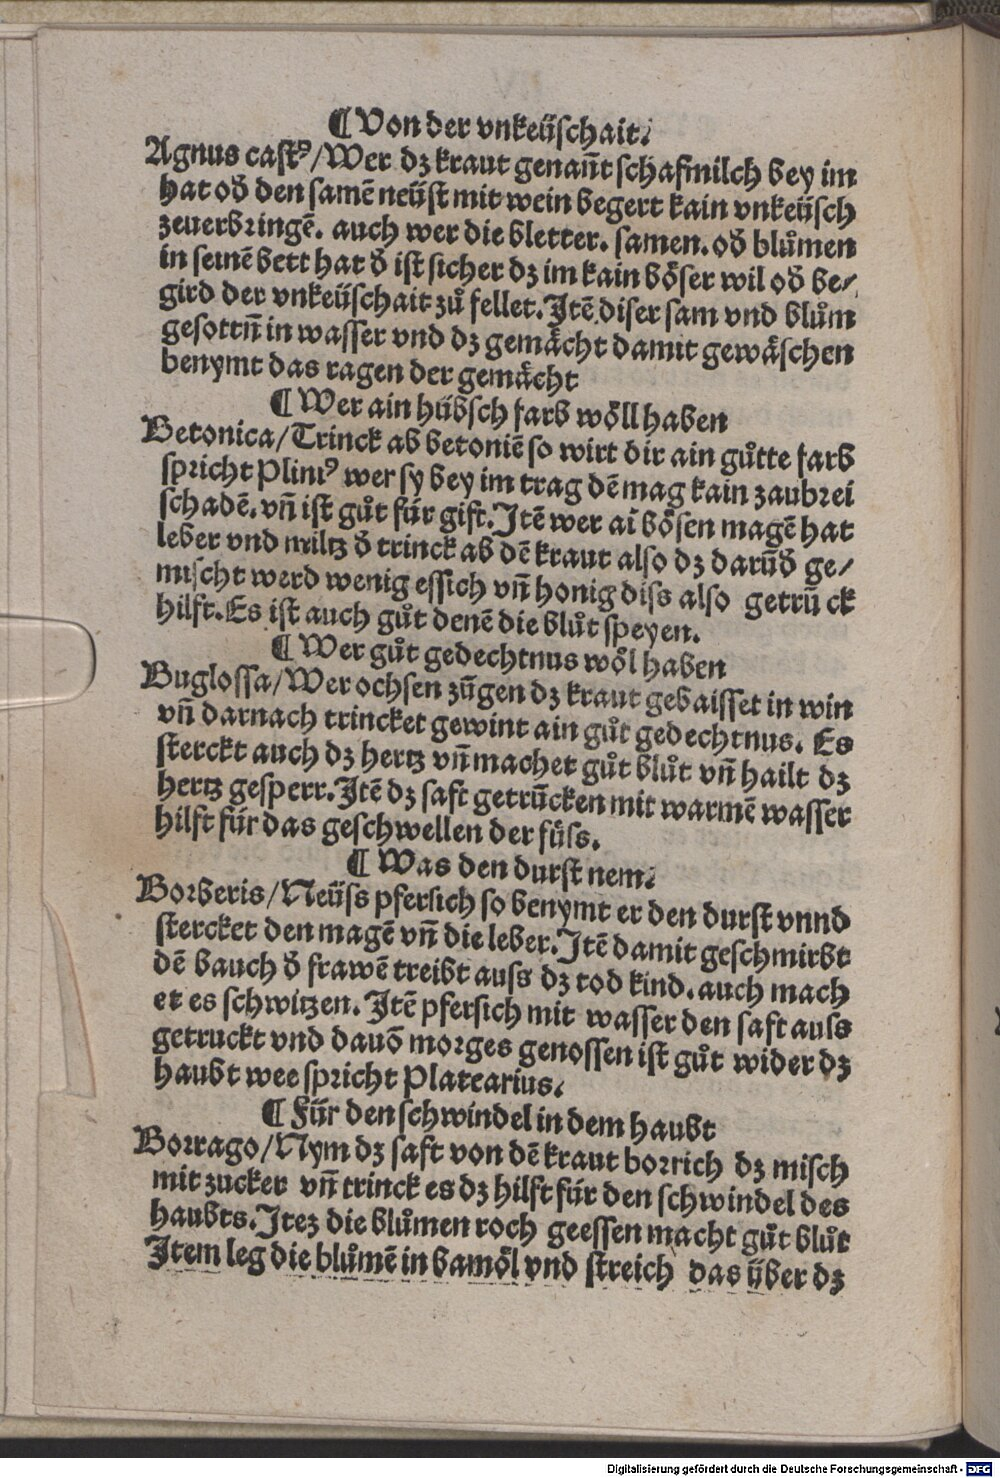 ¶ Von der vnkeüschait.
Agnus castꝰ/Wer dz kraut genañt schafmilch bey im
hat od̕ den samē neüst mit wein begert kain vnkeüsch
zeuerbringē. auch wer die bletter. samen. od̕ blůmen
in seinē bett hat d̕ ist sicher dz im kain böser wil od̕ be⸗
gird der vnkeüschait zů fellet. Itē diser sam vnd blům
gesottñ in wasser vnd dz gemächt damit gewäschen
benymt das ragen der gemächt
¶ Wer ain hübsch farb wöll haben
Betonica/Trinck ab betoniē so wirt dir ain gůtte farb
spricht Pliniꝰ wer sy bey im trag dē mag kain zaubrei
schadē. vñ ist gůt für gift. Itē wer aī bösen magē hat
leber vnd miltz d̕ trinck ab dē kraut also dz darūd̕ ge⸗
mischt werd wenig essich vñ honig diss also getrū ck
hilft. Es ist auch gůt denē die blůt speyen.
¶ Wer gůt gedechtnus wöl haben
Buglossa/Wer ochsen zūgen dz kraut gebaisset in win
vñ darnach trincket gewint ain gůt gedechtnus. Es
sterckt auch dz hertz vñ machet gůt blůt vñ hailt dz
hertz gesperr. Itē dz saft getrūcken mit warmē wasser
hilft für das geschwellen der füss.
¶ Was den durst nem.
Borberis/Neüss pfersich so benymt er den durst vnnd
stercket den magē vñ die leber. Itē damit geschmirbt
dē bauch d̕ frawē treibt auss dz tod kind. auch mach
et es schwitzen. Itē pfersich mit wasser den saft auss
getruckt vnd dauō morges genossen ist gůt wider dz
haubt wee spricht Platearius.
¶ Für den schwindel in dem haubt
Borrago/Nym dz saft von dē kraut borrich dz misch
mit zucker vñ trinck es dz hilft für den schwindel des
haubts. Itez die blůmen roch geessen macht gůt blůt
Item leg die blůmē in bamöl vnd streich das über dz
Digitalisierung gefördert durch die Deutsche Forschungsgemeinschaft - DFG